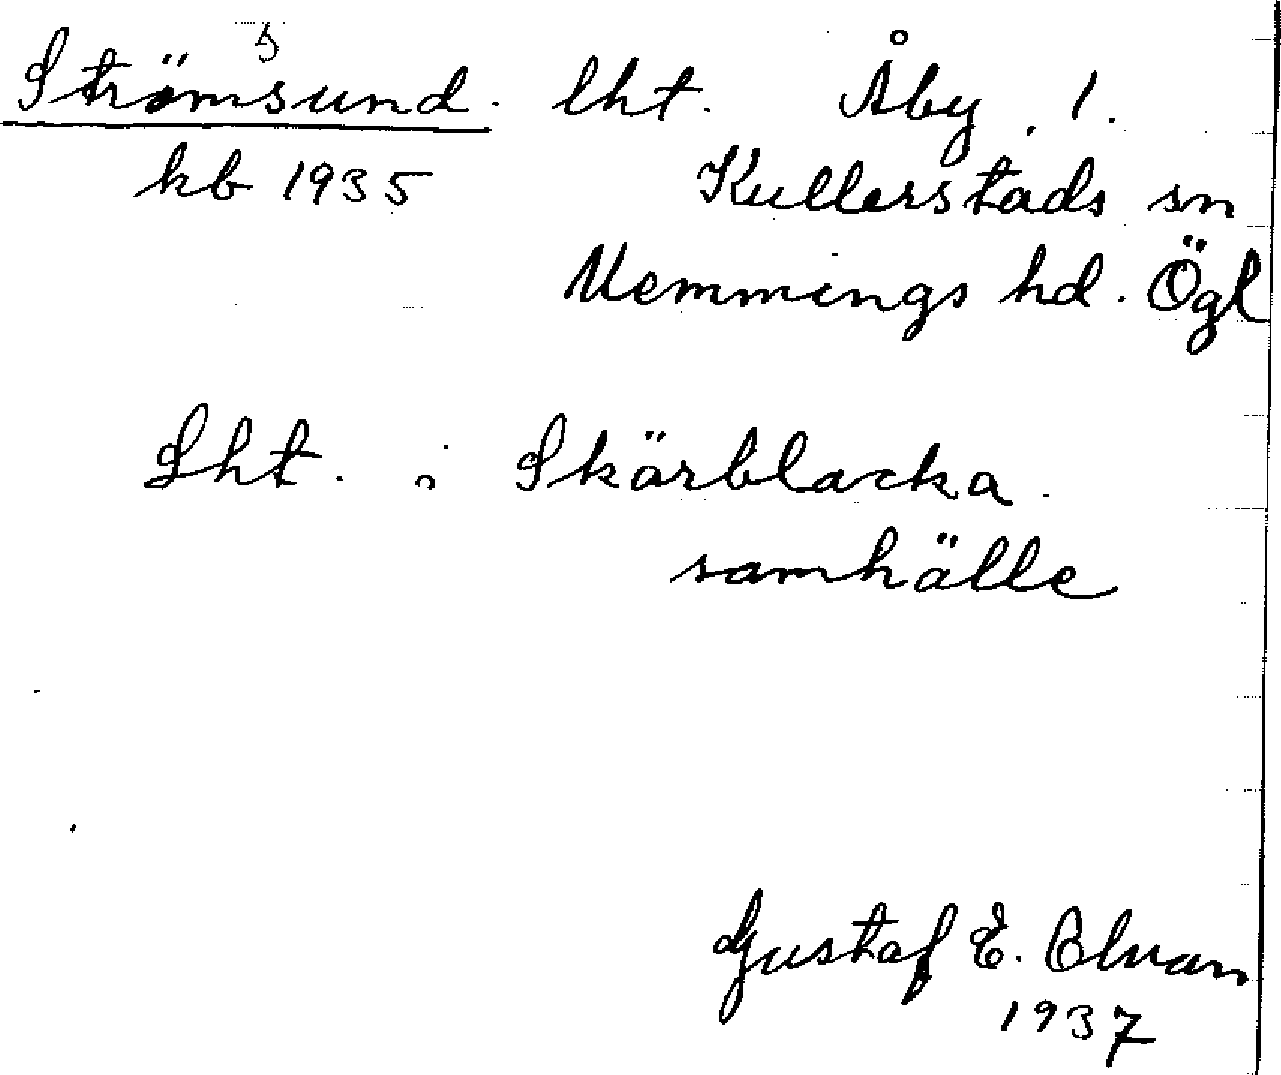 Strömsund. lht. Åby 1.
kb 1935 Kullerstads sn
Memmings hd. Ögl
Lht. i Skärblacka
samhälle
Gustaf E.
1937